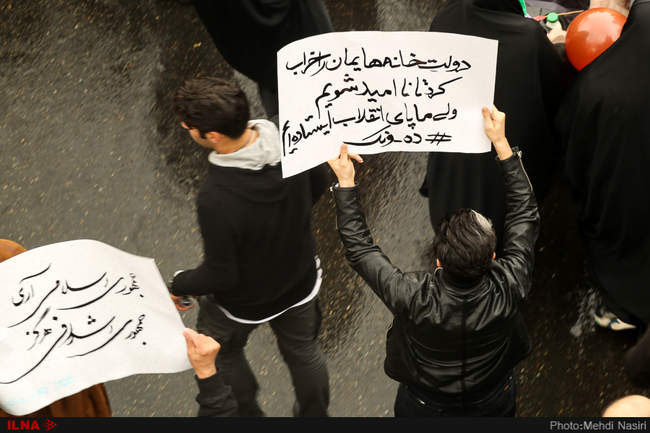 دولت خانه هایمان را خراب
کرد تا نا امید شویم
ولی ما پای انقلاب ایستاده ایم
# ده_ونک
جمهوری اسلامی آری
جمهوری اشرافی هرگز
ILNA
Photo:Mehdi Nasiri